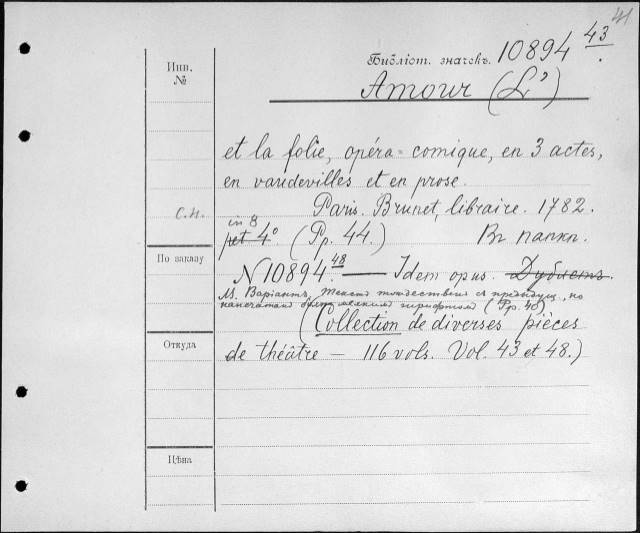 41
Библіот. значекъ. 10894 43.
Amour (L')
Инв.
№
et la folie, opéra-comique, en 3 actes,
en vaudevilles et en prose.
Paris. Brunet, libraire. 1782.
С.н.
in 8
pet 4° (Pp. 44.) Въ папкѣ.
По заказу
N 10894.48 — Idem opus. Дублетъ.
М. Варіантъ. Текстъ тождественъ съ предыдущ., но
напечатанъ болѣе мелкимъ шрифтомъ (Pp. 40)
(Collection de diverses pièces
Откуда
de théâtre — 116 vols. Vol. 43 et 48.)
Цѣна